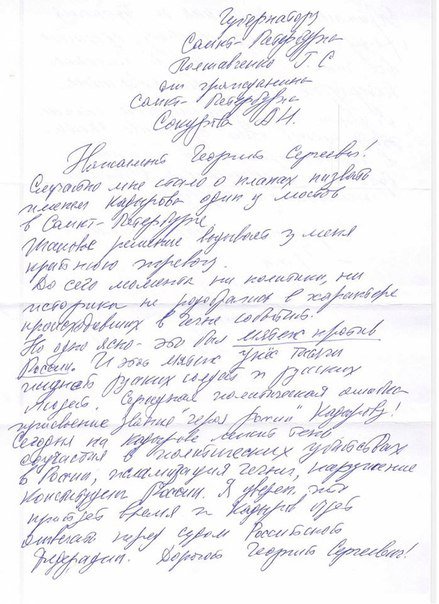 Губернатору
Санкт-Петербурга
Полтавченко Г.С
от гражданина
Санкт-Петербурга
Сокурова А.Н.
Георгий Сергеевич!
Случайно мне стало о планах назвать
именем Кадырова один из мостов
в Санкт-Петербурге
Таковое решение вызывает у меня
крайнюю тревогу.
До сего момента ни политики, ни
историки не разобрались в характере
происходивших в Чечне событий.
Но одно ясно - это был мятеж против
России. И этот мятеж унёс тысячи
жизней русских солдат и русских
людей. Серьёзная политическая ошибка -
присвоение звания "героя России" Кадырову!
Сегодня на Кадырове лежит тень
соучастия в политических убийствах
в России, исламизация Чечни, нарушение
Конституции России. Я уверен, что
придёт время и Кадыров будет
отвечать перед судом Российской
Федерации. Дорогой Георгий Сергеевич!